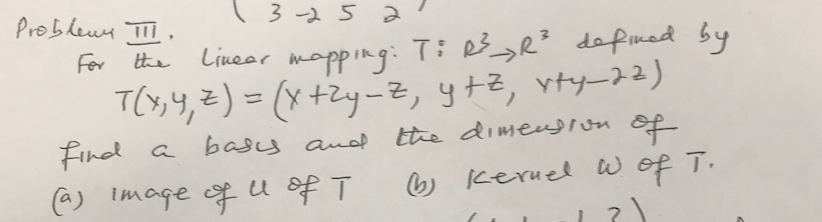 ( 3 -2 5 2 )
Problem III.
For the Linear mapping: T: R³→R³ defined by
T(x,y,z) = (x+2y-z, y+z, x+y-2z)
find a basis and the dimension of
(a) image of U of T (b) Kernel W of T.